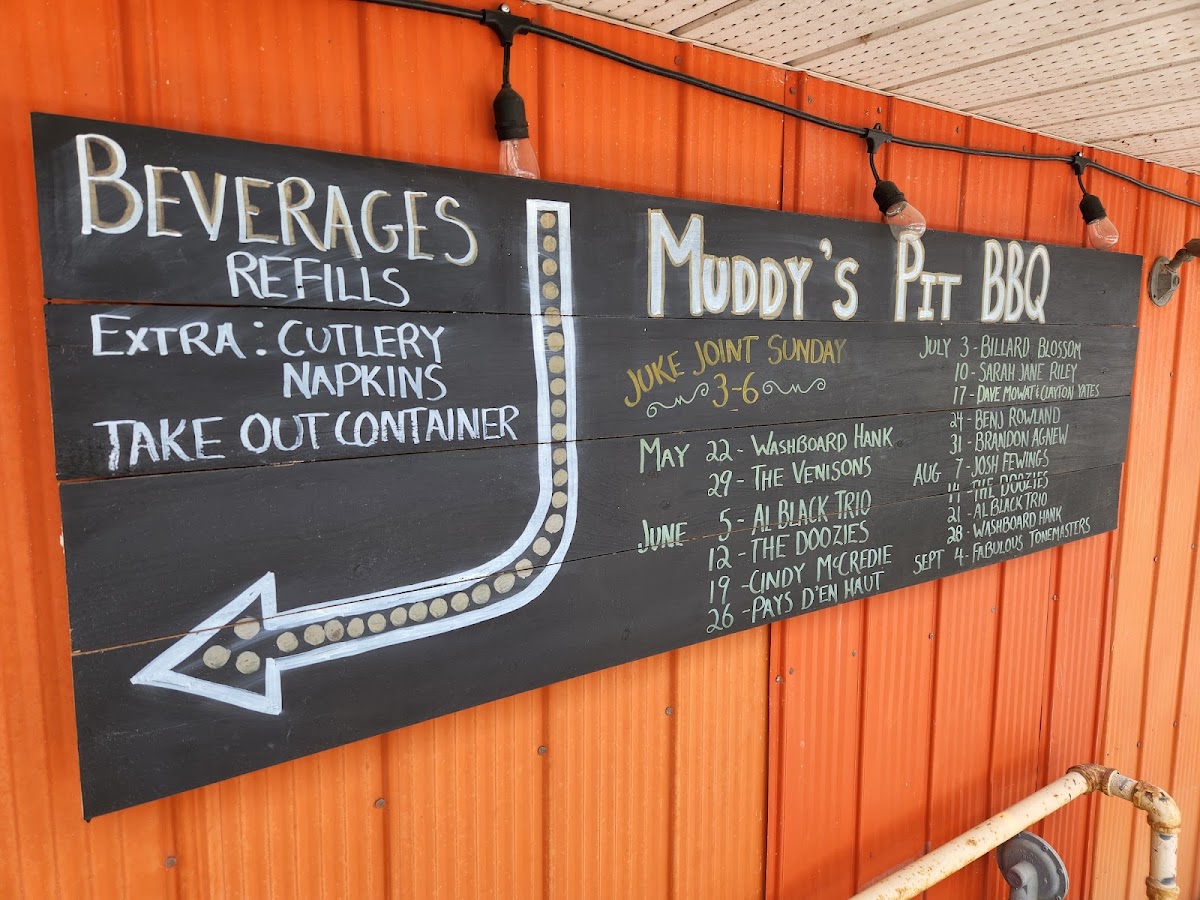 BEVERAGES
REFILLS
EXTRA: CUTLERY
NAPKINS
TAKE OUT CONTAINER
MUDDY'S PIT BBQ
JUKE JOINT SUNDAY
3-6
MAY 22 - WASHBOARD HANK
29 - THE VENISONS
JUNE 5 - AL BLACK TRIO
12 - THE DOOZIES
19 - CINDY McCREDIE
26 - PAYS D'EN HAUT
JULY 3 - BILLARD BLOSSOM
10 - SARAH JANE RILEY
17 - DAVE MOWAT & CLAYTON YATES
24 - BENJ ROWLAND
31 - BRANDON AGNEW
AUG 7 - JOSH FEWINGS
14 - THE DOOZIES
21 - AL BLACK TRIO
28 - WASHBOARD HANK
SEPT 4 - FABULOUS TONEMASTERS